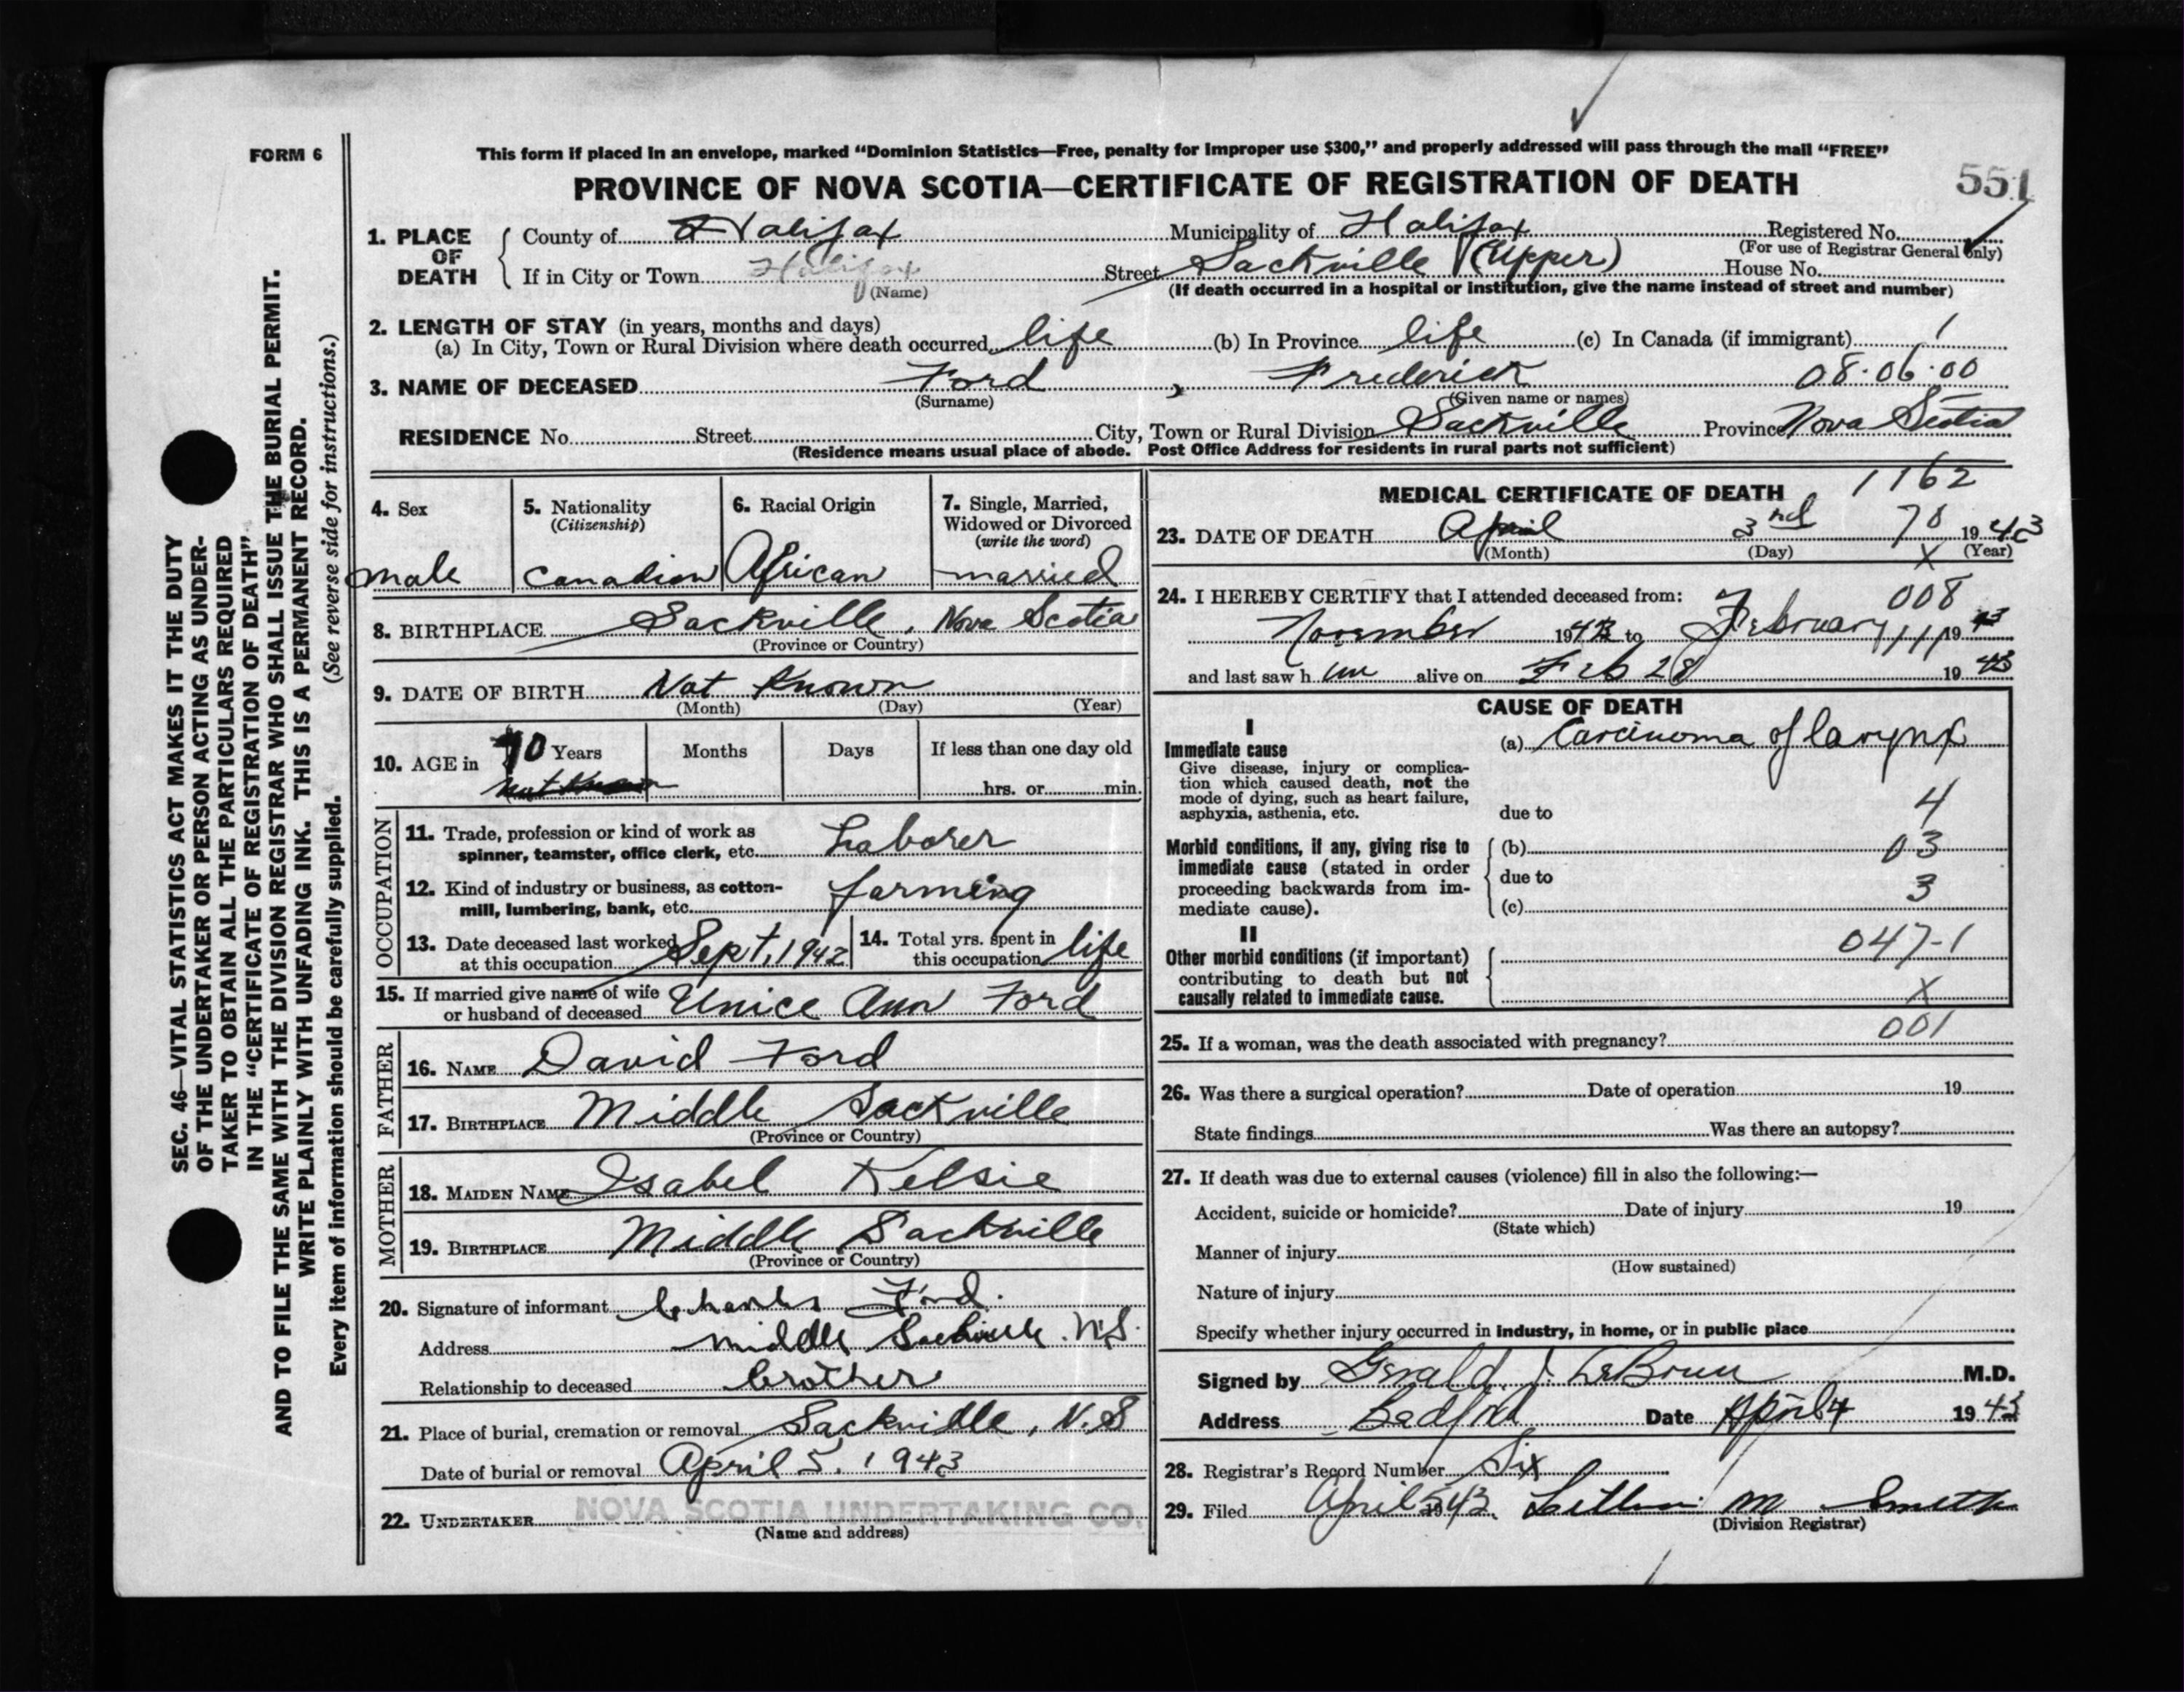 FORM 6
This form if placed in an envelope, marked “Dominion Statistics—Free, penalty for improper use $300,” and properly addressed will pass through the mail “FREE”
PROVINCE OF NOVA SCOTIA—CERTIFICATE OF REGISTRATION OF DEATH
551
1. PLACE OF DEATH { County of Halifax Municipality of Halifax Registered No.
(For use of Registrar General only)
If in City or Town Halifax Street Sackville (Upper) House No.
(Name) (If death occurred in a hospital or institution, give the name instead of street and number)
2. LENGTH OF STAY (in years, months and days)
(a) In City, Town or Rural Division where death occurred life (b) In Province life (c) In Canada (if immigrant) 1
3. NAME OF DECEASED Ford , Frederick 08·06·00
(Surname) (Given name or names)
RESIDENCE No. Street City, Town or Rural Division Sackville Province Nova Scotia
(Residence means usual place of abode. Post Office Address for residents in rural parts not sufficient)
4. Sex male
5. Nationality (Citizenship) Canadian
6. Racial Origin African
7. Single, Married, Widowed or Divorced (write the word) married
8. BIRTHPLACE Sackville, Nova Scotia
(Province or Country)
9. DATE OF BIRTH Not Known
(Month) (Day) (Year)
10. AGE in 70 Years Months Days If less than one day old
hrs. or min.
OCCUPATION
11. Trade, profession or kind of work as spinner, teamster, office clerk, etc. Laborer
12. Kind of industry or business, as cotton-mill, lumbering, bank, etc. farming
13. Date deceased last worked at this occupation Sept, 1942
14. Total yrs. spent in this occupation life
15. If married give name of wife or husband of deceased Unice Ann Ford
FATHER
16. NAME David Ford
17. BIRTHPLACE Middle Sackville
(Province or Country)
MOTHER
18. MAIDEN NAME Isabel Kelsie
19. BIRTHPLACE Middle Sackville
(Province or Country)
20. Signature of informant Charles Ford.
Address middle Sackville. N.S.
Relationship to deceased brother
21. Place of burial, cremation or removal Sackville, N.S
Date of burial or removal April 5, 1943
22. UNDERTAKER NOVA SCOTIA UNDERTAKING CO.
(Name and address)
MEDICAL CERTIFICATE OF DEATH 1162
23. DATE OF DEATH April 3nd 70 1943
(Month) (Day) X (Year)
24. I HEREBY CERTIFY that I attended deceased from: 008
November 1942 to February 1943
and last saw him alive on Feb 28 1943
CAUSE OF DEATH
I
Immediate cause
Give disease, injury or complication which caused death, not the mode of dying, such as heart failure, asphyxia, asthenia, etc.
(a) Carcinoma of larynx
due to 4
Morbid conditions, if any, giving rise to immediate cause (stated in order proceeding backwards from immediate cause).
(b) 03
due to 3
(c)
II
Other morbid conditions (if important) contributing to death but not causally related to immediate cause.
047-1
X
25. If a woman, was the death associated with pregnancy? 001
26. Was there a surgical operation? Date of operation 19
State findings Was there an autopsy?
27. If death was due to external causes (violence) fill in also the following:—
Accident, suicide or homicide? Date of injury 19
(State which)
Manner of injury
(How sustained)
Nature of injury
Specify whether injury occurred in industry, in home, or in public place
Signed by Gerald J. LeBrun M.D.
Address Bedford Date April 4 1943
28. Registrar's Record Number Six
29. Filed April 5 1943. M Smith
(Division Registrar)
SEC. 46—VITAL STATISTICS ACT MAKES IT THE DUTY
OF THE UNDERTAKER OR PERSON ACTING AS UNDER-
TAKER TO OBTAIN ALL THE PARTICULARS REQUIRED
IN THE “CERTIFICATE OF REGISTRATION OF DEATH”
AND TO FILE THE SAME WITH THE DIVISION REGISTRAR WHO SHALL ISSUE THE BURIAL PERMIT.
WRITE PLAINLY WITH UNFADING INK. THIS IS A PERMANENT RECORD.
Every item of information should be carefully supplied. (See reverse side for instructions.)